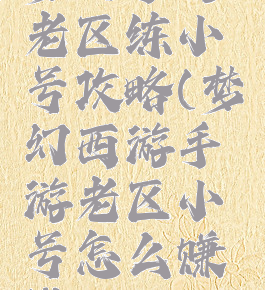 老区练小
号攻略(梦
幻西游手
游老区小
号怎么赚